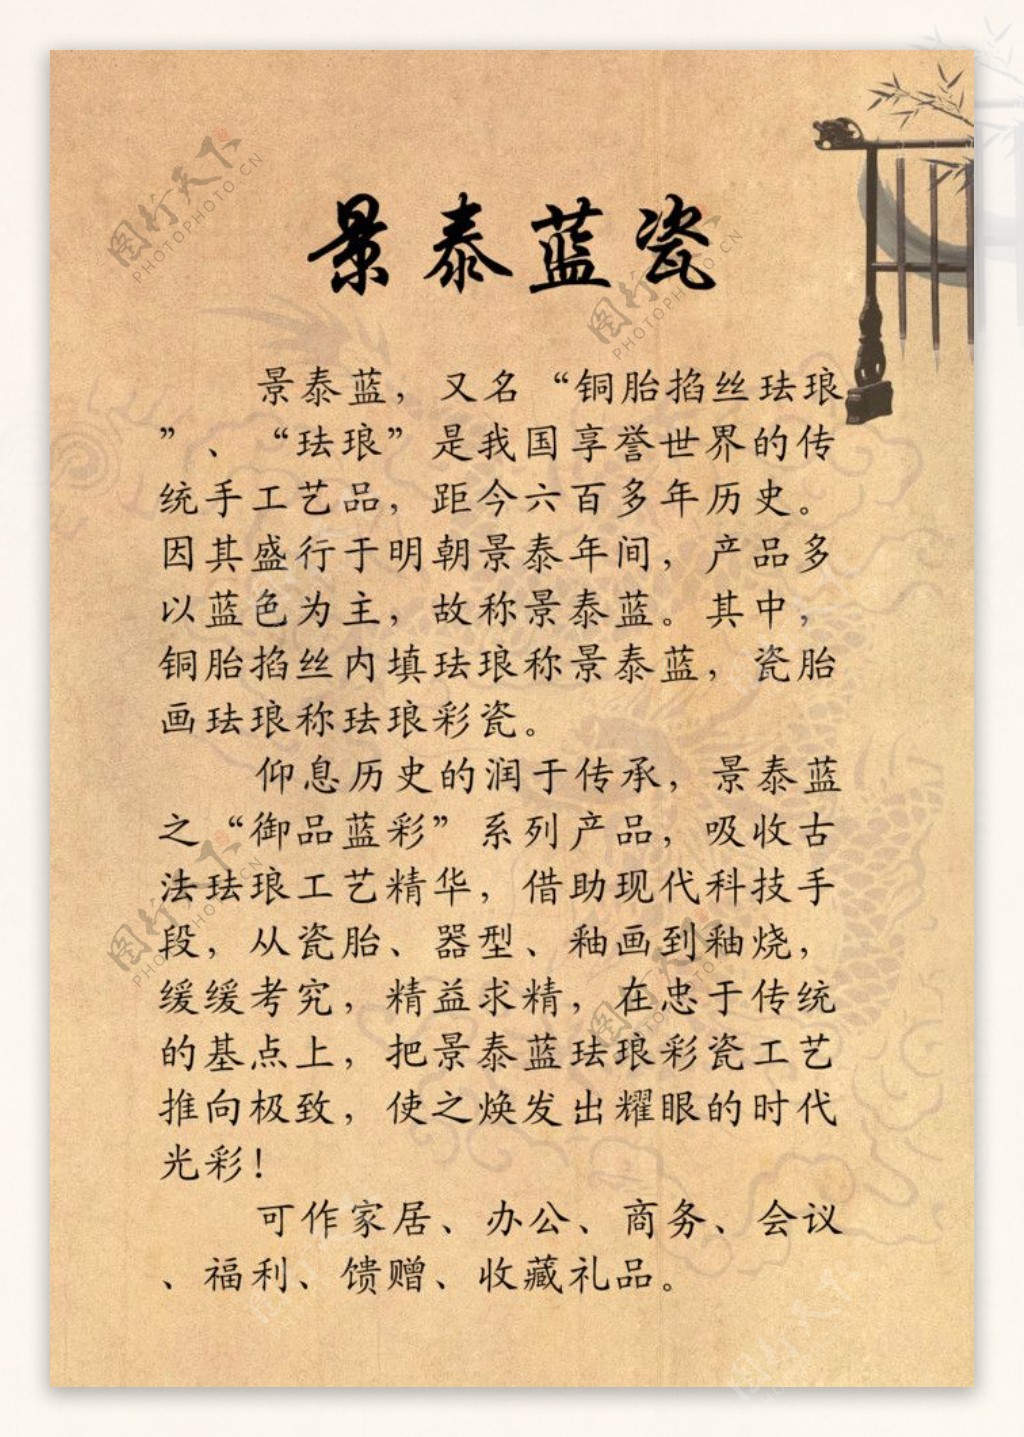 景泰蓝瓷
景泰蓝，又名“铜胎掐丝珐琅
”、“珐琅”是我国享誉世界的传
统手工艺品，距今六百多年历史。
因其盛行于明朝景泰年间，产品多
以蓝色为主，故称景泰蓝。其中，
铜胎掐丝内填珐琅称景泰蓝，瓷胎
画珐琅称珐琅彩瓷。
仰息历史的润于传承，景泰蓝
之“御品蓝彩”系列产品，吸收古
法珐琅工艺精华，借助现代科技手
段，从瓷胎、器型、釉画到釉烧，
缓缓考究，精益求精，在忠于传统
的基点上，把景泰蓝珐琅彩瓷工艺
推向极致，使之焕发出耀眼的时代
光彩！
可作家居、办公、商务、会议
、福利、馈赠、收藏礼品。
图行天下
PHOTOPHOTO.CN
图行天下
PHOTOPHOTO.CN
图行天下
PHOTOPHOTO.CN